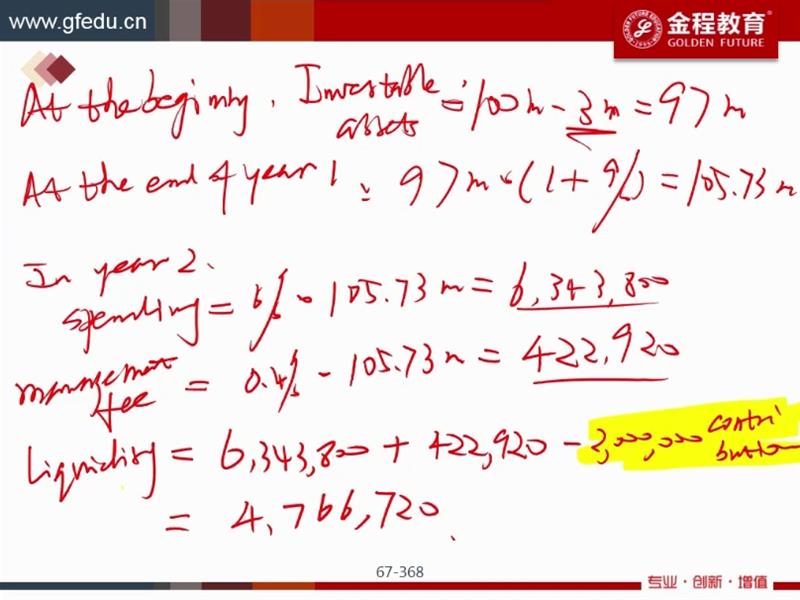 www.gfedu.cn
金程教育®
GOLDEN FUTURE
At the beginning, Investable assets = 100m - 3m = 97m
At the end of year 1: 97m·(1+9%) = 105.73m
In year 2.
spending = 6% · 105.73m = 6,343,800
management fee = 0.4% · 105.73m = 422,920
Liquidity = 6,343,800 + 422,920 - 3,000,000 contribution
= 4,766,720.
67-368
专业·创新·增值